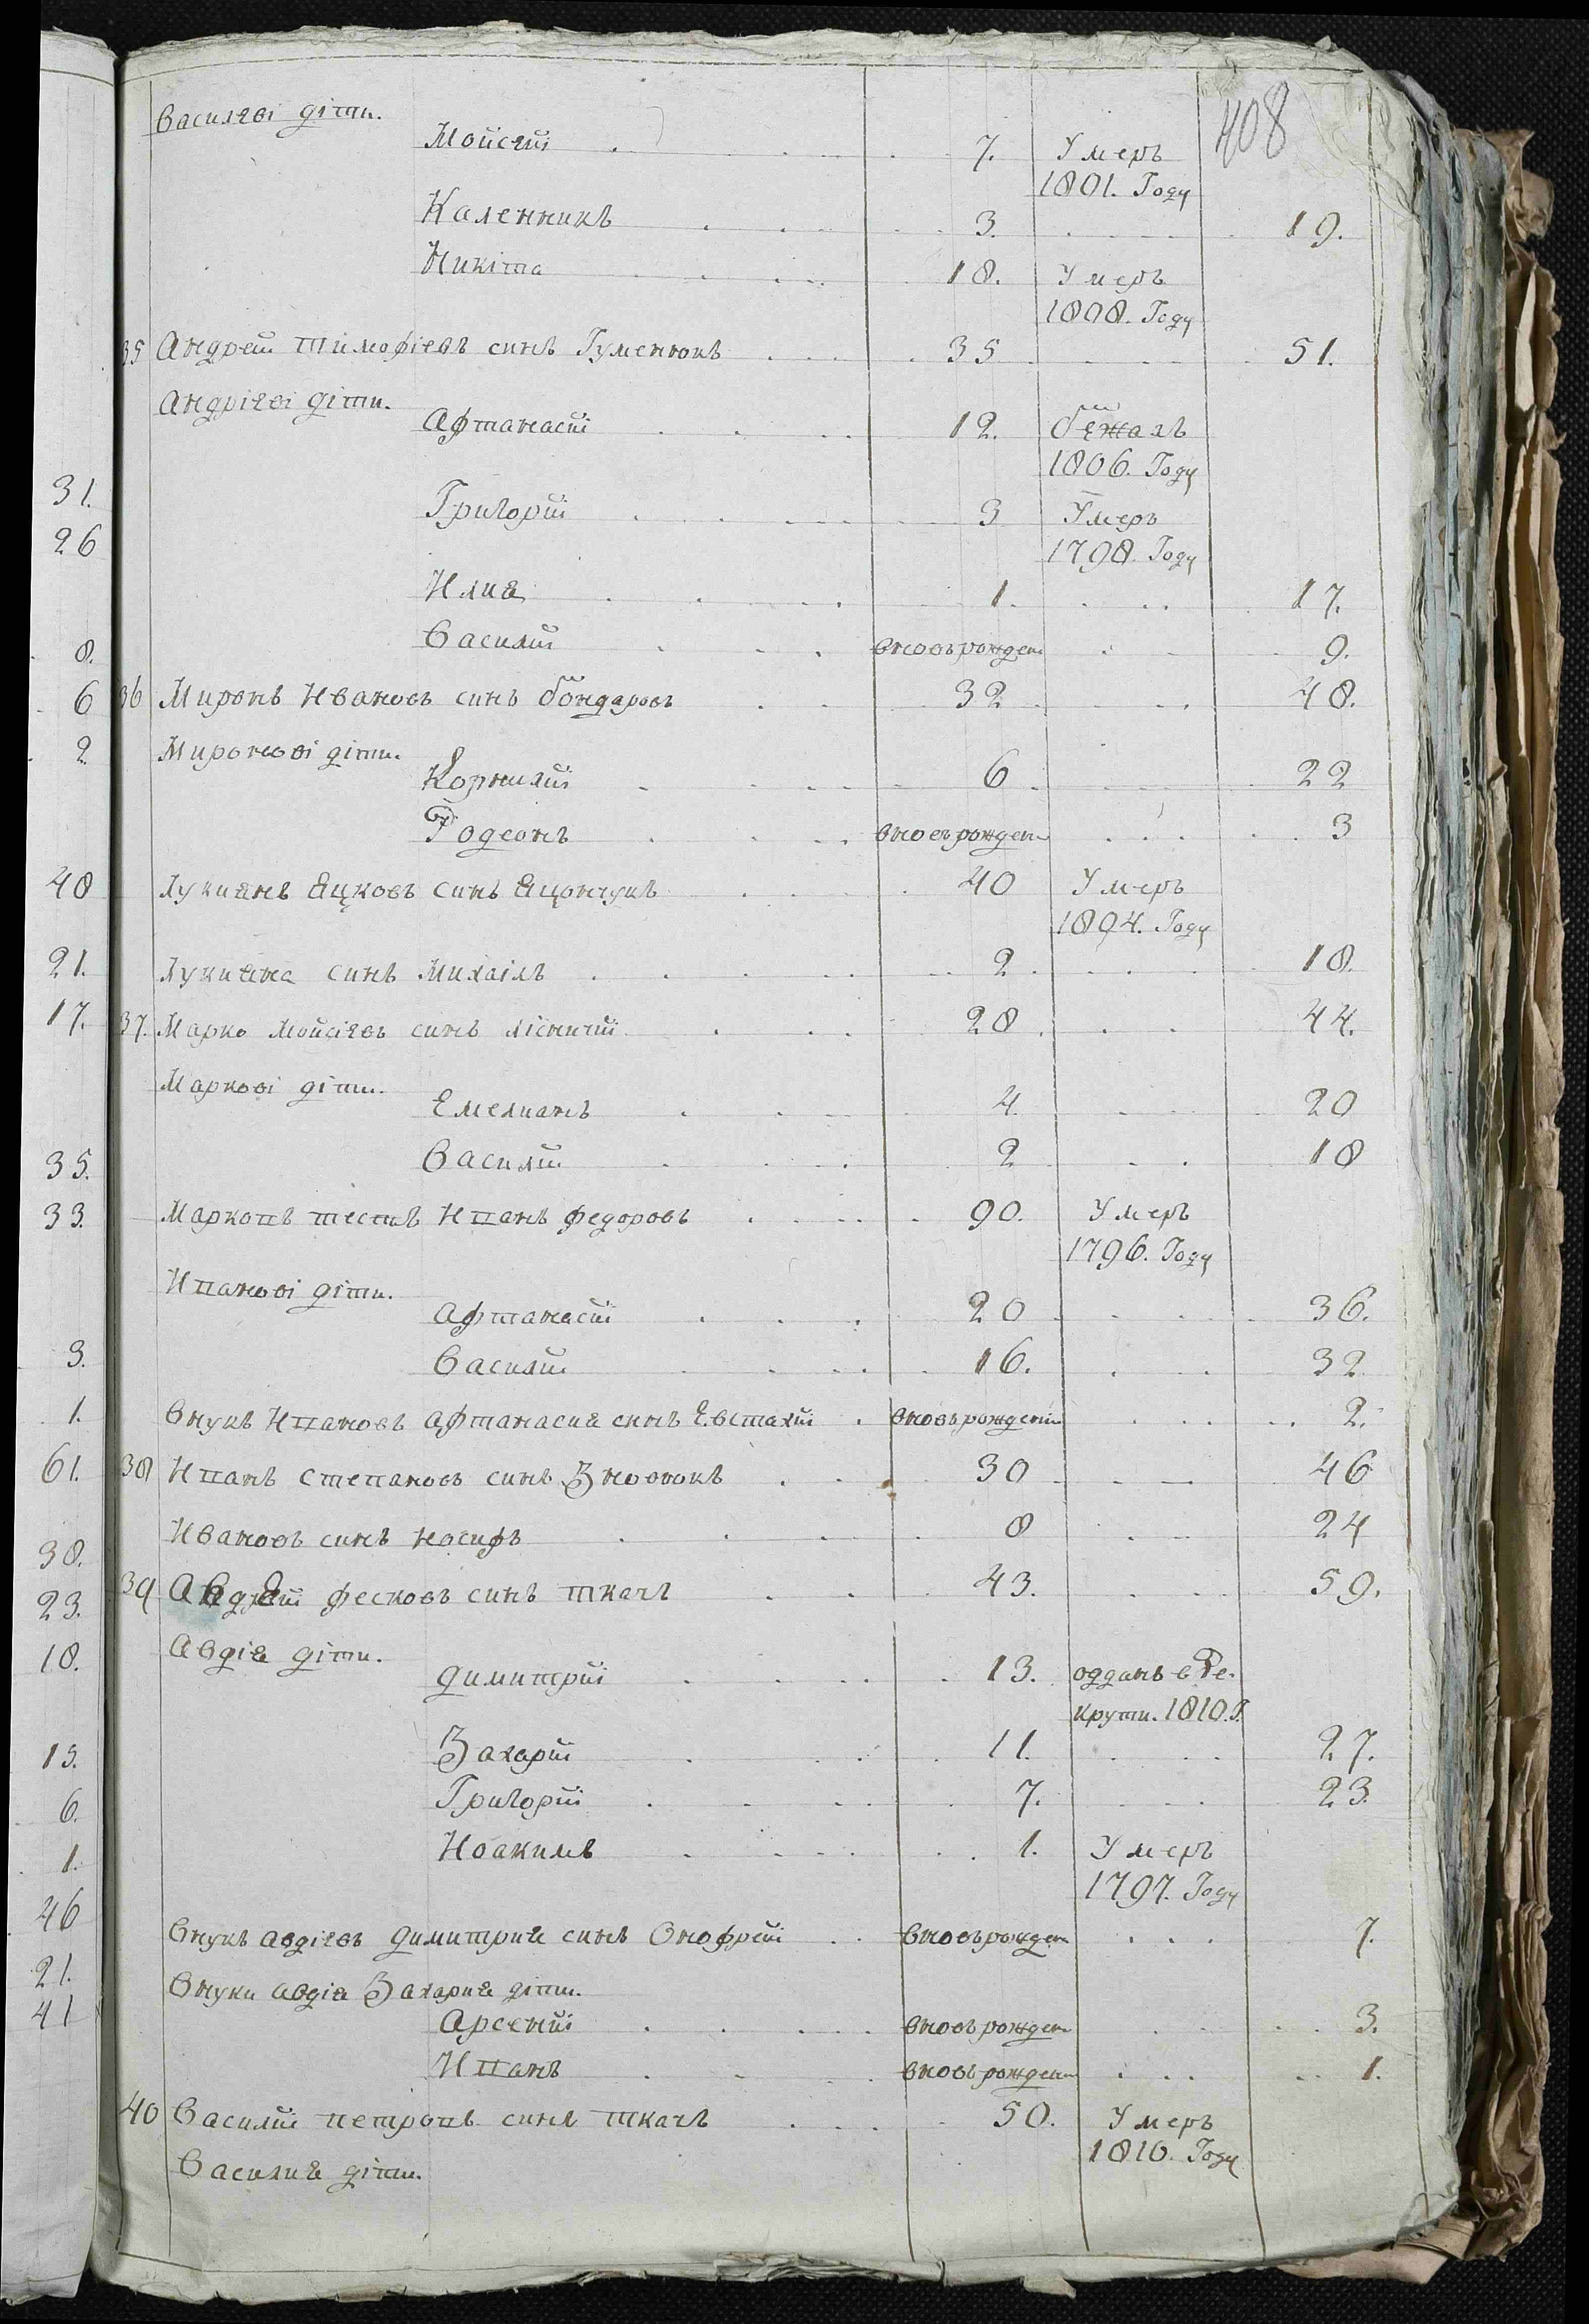 408
Василеві діти.
Мойсей 7. Умеръ
1801. Году
Каленникъ 3. 19.
Никіта 18. Умеръ
1808. Году
35 Андрей Тимофіевъ синъ Гуменюкъ 35 51.
Андріеві діти.
Афтанасій 12. бежалъ
1806. Году
Григорій 3 Умеръ
1798. Году
Илия 1. 17.
Василій вновърожден 9.
36 Миронъ Ивановъ синъ бондаровъ 32 48.
Миронові діти.
Корнилій 6 22
Родеонъ вновърожден 3
Лукиянъ Яцковъ синъ Яцончукъ 40 Умеръ
1804. Году
Лукияна синъ Михаілъ 2 18.
37. Марко Мойсіевъ синъ лісничій 28 44.
Маркові діти.
Емелианъ 4. 20
Василій 2 18
Марковъ тесть Иванъ федоровъ 90. Умеръ
1796. Году
Иванові діти.
Афтанасій 20 36.
Василій 16. 32
Внукъ Ивановъ Афтанасия синъ Евстахій вновърожденій 2.
38 Иванъ Степановъ синъ Зновюкъ 30 46
Ивановъ синъ Иосифъ 8 24
39 Авдей фесковъ синъ ткачъ 43. 59.
Авдія діти.
Димитрій 13. оддань в Ре-
крути. 1810. Г.
Захарій 11. 27.
Григорій 7. 23.
Иоакимъ 1. Умеръ
1797. Году
Внукъ Авдіевъ Димитрия синъ Онофрей вновърожден 7.
Внуки Авдія Захария діти.
Арсеній вновърожден 3.
Иванъ вновърожден 1.
40 Василій петровъ синъ ткачъ 50. Умеръ
1810. Году
Василия діти.
31.
26
8.
6
2
48
21.
17.
35.
33.
3.
1.
61.
38.
23.
18.
13.
6.
1.
46
21.
41